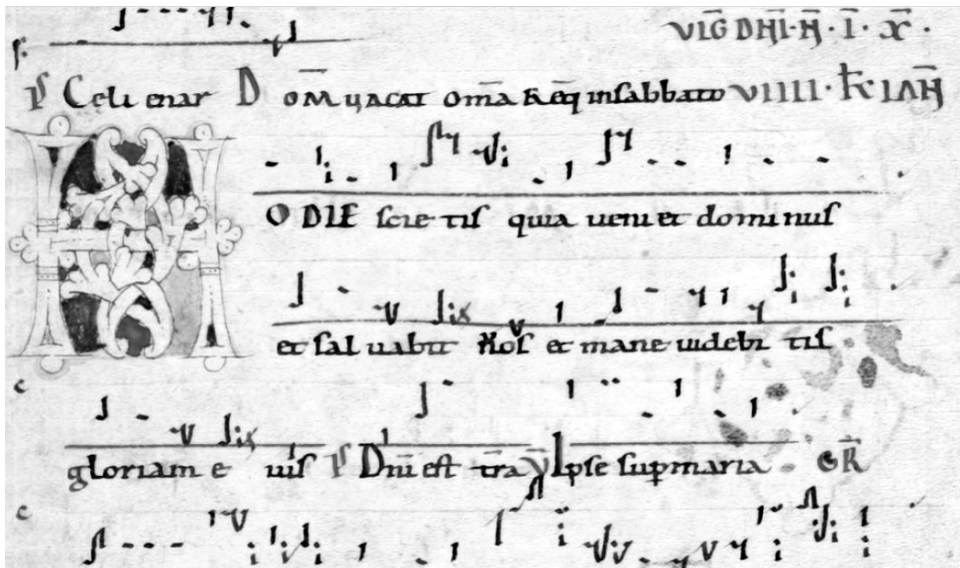 VIG DNI·N̄·I·X̄·
P̄S Celi enar Dom uacat om̄a Req̄ in sabbato VIIII·kl IAN̄
HODIE scie tis quia ueniet dominus
et sal uabit Nos et mane uidebi tis
gloriam e iuis P̄S Dn̄i est tr̄a V̄ Ipse sup maria GR̄